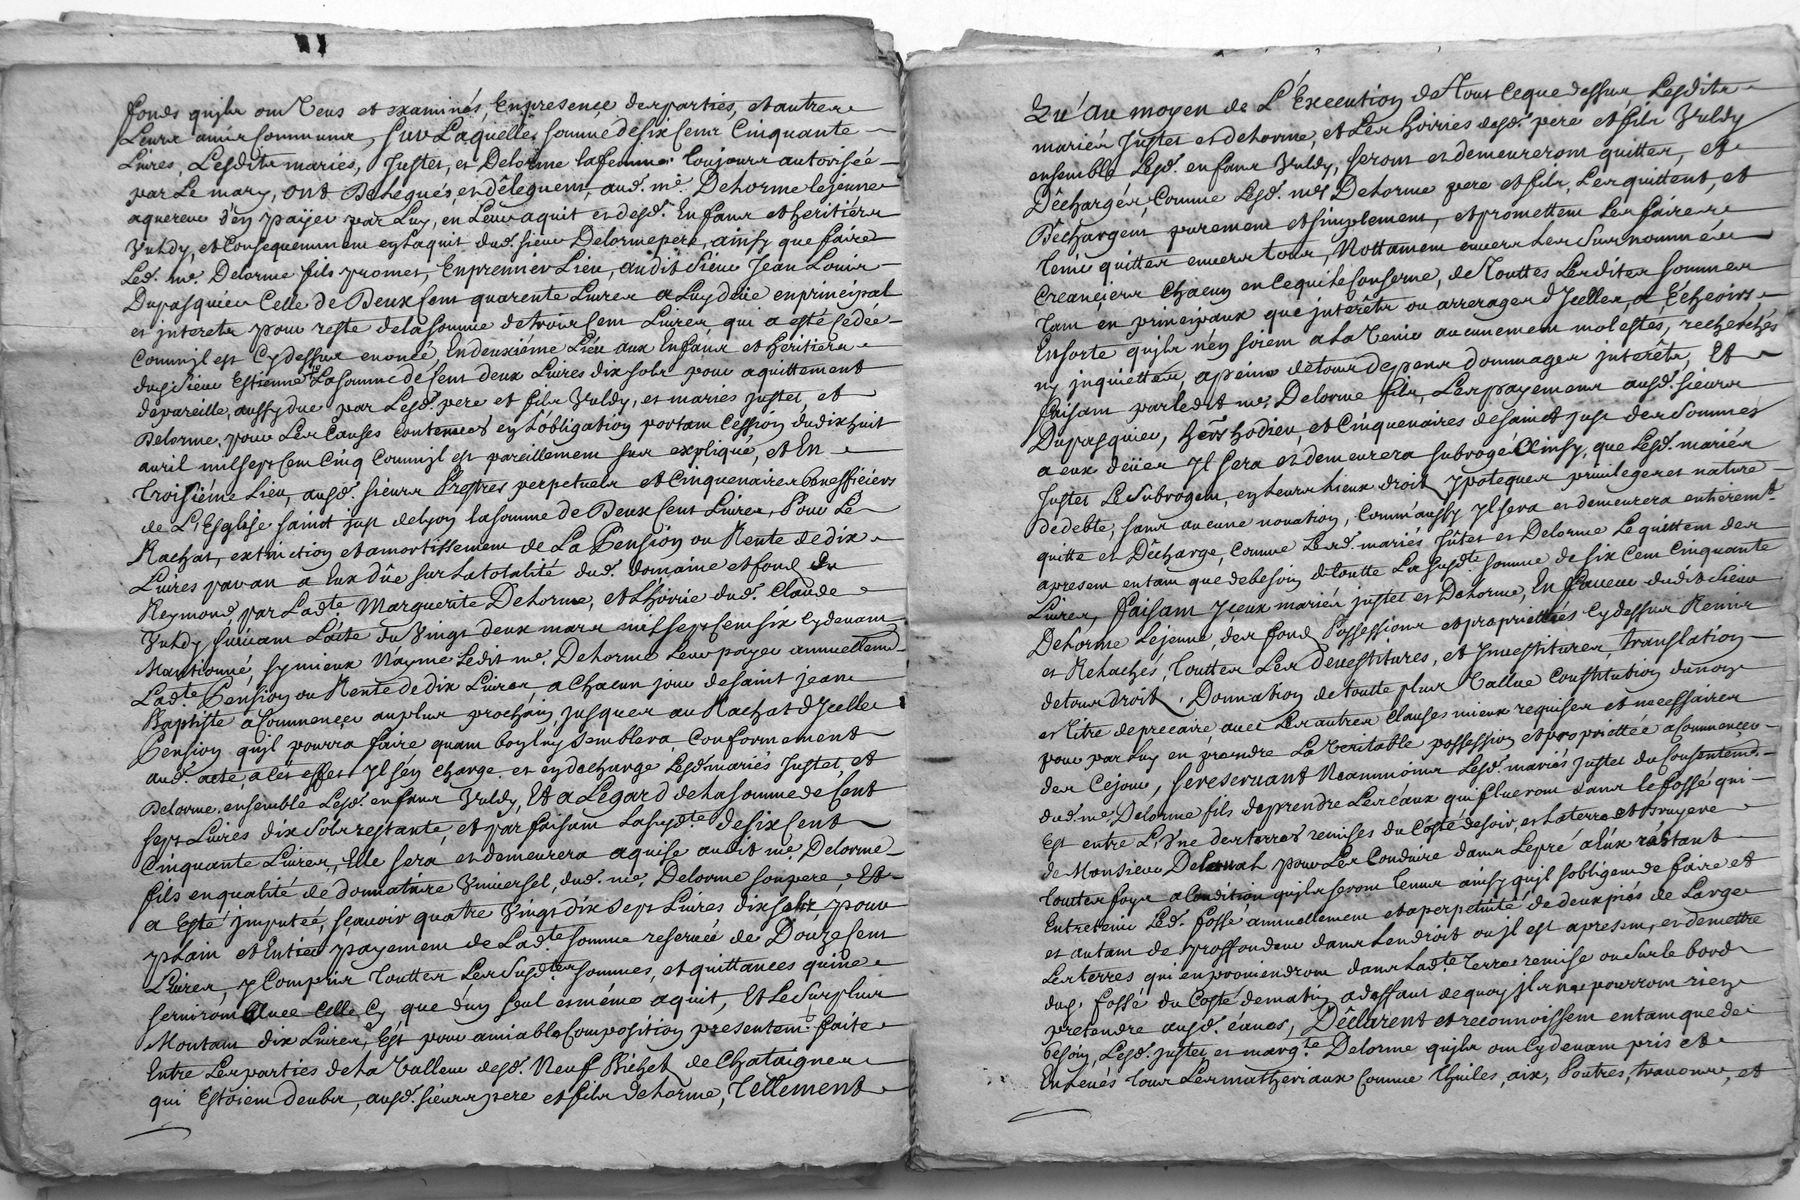 fonds qu'jls ont veus et examinés, En presence des parties, et autres
Leurs amis communs, sur Laquelle somme de six Cent Cinquante
Livres, Lesdits mariés, Justet, et Delorme la femme toujours autorisée
par Le mary, ont Delegués, et délequent, aud. me. Delorme lejeune
aquereur d'en payer par Luy, en Leur aquit et desd. Enfans et heritiers
Vuldy, et Consequemment en Laquit dud. sieur Delorme pere, ainsy que faire
Led. me. Delorme fils promet, En premier Lieu, audit sieur Jean Louis
Dupasquier Celle de Deux Cent quarente Livres a Luy dûe en principal
et jnterets pour reste de la somme de trois Cent Livres qui a esté cedée
Comm'jl est Cydessus enoncé En deuxiéme Lieu aux Enfans et heritiers
dud. sieur Estienne La somme de Cent deux Livres dix sols pour aquittement
de pareille, aussy due par Lesd. pere et fils Vuldy, et mariés Justet, et
Delorme, pour Les Causes Contenues en L'obligation portant Cession du dix huit
avril mil sept Cent Cinq Comm'jl est pareillement sus expliqué, et En
troisiéme Lieu, ausd. sieurs Prestres perpetuels et Cinquenaires beneffiéciers
de L'Esglise saint just de Lyon la somme de Deux Cent Livres, Pour Le
Rachat, extinction et amortissement de La Pension ou Rente de dix
Livres par an a Eux dûe sur La totalité dud. domaine et fond de
Reymond, par Ladte Marguerite Delorme, et L'hoirie dud. Claude
Vuldy suivant L'acte du Vingt deux mars mil sept Cent six Cydevant
Mantionné, sy mieux N'ayme Ledit me. Delorme Leur payer annuellemt
Ladte Pension ou Rente de dix Livres, a Chacun jour de saint jean
Baptiste a Commencer au plus prochain, jusques au Rachat d'Jcelle
Pension qu'jl pourra faire quant bon luy semblera, Conformement
aud. acte, a Cet effet Jl s'en Charge et en décharge Lesd. mariés Justet, et
Delorme, ensemble Lesd. enfans Vuldy, Et a L'Egard de La somme de Cent
sept Livres dix sols restante, et parfaisant La susdte de six Cent
Cinquante Livres, Elle sera et demeurera aquise audit me. Delorme
fils en qualité de donnataire Vniversel, dud. me. Delorme son pere, Et
a Esté jmputée, scavoir quatre Vingt dix sept Livres dix sols, pour
plain et Entier payement de Ladte somme reservée de Douze Cent
Livres, y Compris touttes Les susdtes sommes, et quittances qui ne
serviront Avec Celle Cy que d'un seul et même aquit, Et Le surplus
Montant dix Livres, Est pour amiable Composition presentemt faite
Entre Les parties de La Valleur desd. Neuf Bichet de Chataignes
qui Estoient deubs, ausd. sieurs pere et fils Delorme, Tellement
Qu'Au moyen de L'Execution de Tout Ce que dessus Lesdits
mariés Justet et Delorme, et Les hoiries desd. pere et fils Vuldy
ensemble Lesd. enfans Vuldy, seront et demeureront quittes, et
Déchargés, Comme Lesd. mes Delorme pere et fils, Les quittent, et
Déchargent purement et simplement, et promettent Les faire
tenir quittes envers tous, Nottament envers Les Surnommés
Creanciers Chacun en Ce qui Le Conserne, de Touttes Lesdites sommes
tant en principaux que jnterêts ou arrerages d'Jcelles a Echeoirs
Ensorte qu'jls n'en soient a La Venir aucunement molestés, recherchés
ny jnquiettés, a peine de tous depens dommages jnterêts, Et
faisant par Ledit me. Delorme fils, Les payemens ausd. sieurs
Dupasquier, hoirs hodieu, et Cinquenaires de saint just des sommes
a eux dües Jl sera et demeurera subrogé Ainsy, que Lesd. mariés
Justet Le subrogent, en Leurs Lieux droit ypoteques privileges et nature
de debte, sans aucune novation, Comm'aussy Jl sera et demeurera entieremt
quitte et Décharge, Comme Lesd. mariés Justet et Delorme Le quittent des
apresent en tant que de besoin de toutte La susdte somme de six Cent Cinquante
Livres, faisant yceux mariés justet et Delorme, En faveur dudit sieur
Delorme Lejeune, des fond Possessions et proprietés Cy dessus Remis
et Relachés, touttes Les devestitures, et Jnvestitures, translation
de tous droit, Donnation de toutte plus Vallue constitution du nom
et titre de precaire, avec Les autres Clauses mieux requises et necessaires
pour par Luy en prendre La veritable possession et propriettée a Commencer
des Ce jour, se reservant Neanmoins Lesd. mariés justet du Consentemt
dud. me. Delorme fils de prendre Les eaux qui flueront dans le fossé qui
Est entre L'Vne des terres remises du Costé de soir, et La terre et bruyere
de Monsieur Delorme pour Les Conduire dans Le pré a eux restant
touttes foys a Condition qu'jls seront tenus ainsy qu'jl s'obligent de faire et
Entretenir Led. fossé annuellement et a perpetuité de deux piés de Large
et autant de proffondeur dans Lendroit ou jl est apresent, et de mettre
Les terres qui en proviendront dans Ladte terre remise ou sur le bord
dud. fossé du Costé de matin a deffaut de quoy jls ne pourront rien
pretendre ausd. eaues, Déclarent et reconnoissent en tant que de
besoin, Lesd. justet et margte Delorme qu'jls ont Cydevant pris et
Enlevés tous Les matheriaux Comme thuiles, aix, Poutres, travons, et